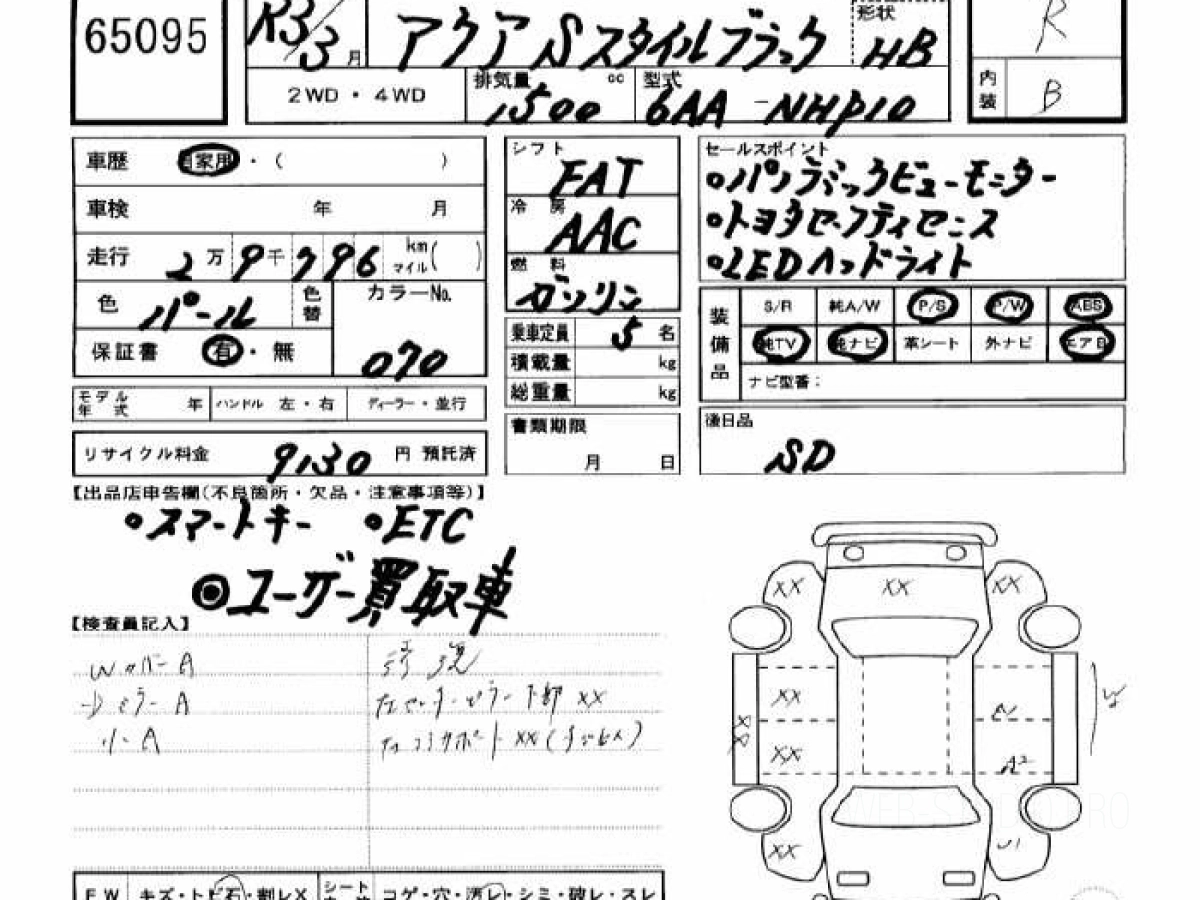 65095
R3/3月 アクア Sスタイルブラック 形状 HB R
2WD・4WD 排気量 1500 cc 型式 6AA-NHP10 内装 B
車歴 自家用・( )
車検 年 月
走行 2万9千796 km マイル( )
色 パール 色替 カラーNo. 070
保証書 有・無
モデル年式 年 ハンドル 左・右 ディーラー・並行
リサイクル料金 9130 円 預託済
シフト FAT
冷房 AAC
燃料 ガソリン
乗車定員 5 名
積載量 kg
総重量 kg
書類期限
月 日
セールスポイント
○パノラミックビューモニター
○トヨタセーフティセンス
○LEDヘッドライト
装備品 S/R 純A/W P/S P/W ABS
純TV 純ナビ 革シート 外ナビ エアB
ナビ型番:
後日品
SD
【出品店申告欄(不良箇所・欠品・注意事項等)】
○スマートキー ○ETC
◎ユーザー買取車
【検査員記入】
Wカバー A
ミラー A
A
左センターピラー下部 XX
サポート XX
XX XX XX
XX A2
XX XX
XX
FW キズ・トビ石・割レX シート コゲ・穴・汚レ・シミ・破レ・スレ